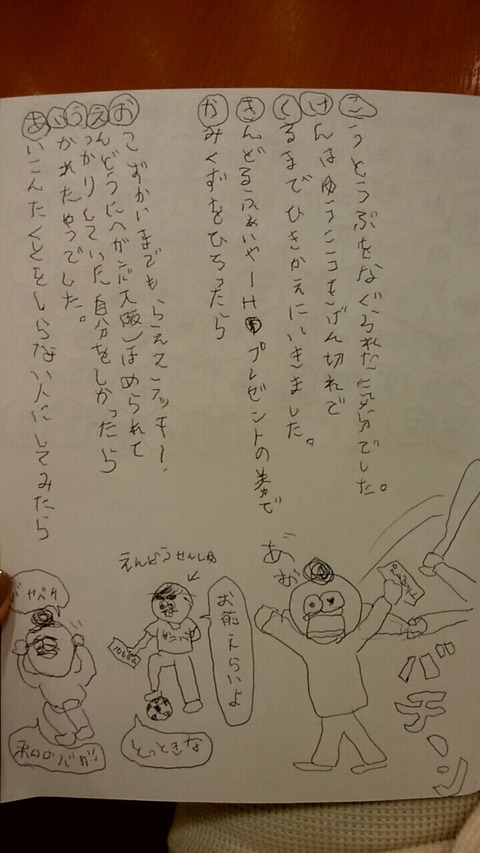 あいこんたくとをしらない人にしてみたら
いかれたやつでした。
うっかりしていた自分をしかったら
えんどうに(ガンバ大阪)ほめられて
おこずかいまでもらえてラッキー!
かみくずをひろったら
きんどるふぁいやーHDプレゼントの券で
くるまでひきかえにいきました。
けんはゆうこうきげん切れで
こうとうぶをなぐられた気分でした。
私のバカ!!
えんどうせんしゅ
お前えらいよ
とっときな
バチーン